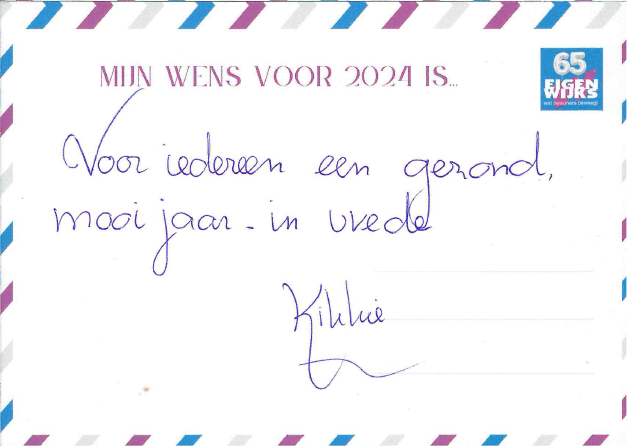 MIJN WENS VOOR 2024 IS...
65
EIGEN
WIJKS
wat bewoners beweegt
Voor iedereen een gezond,
mooi jaar - in vrede